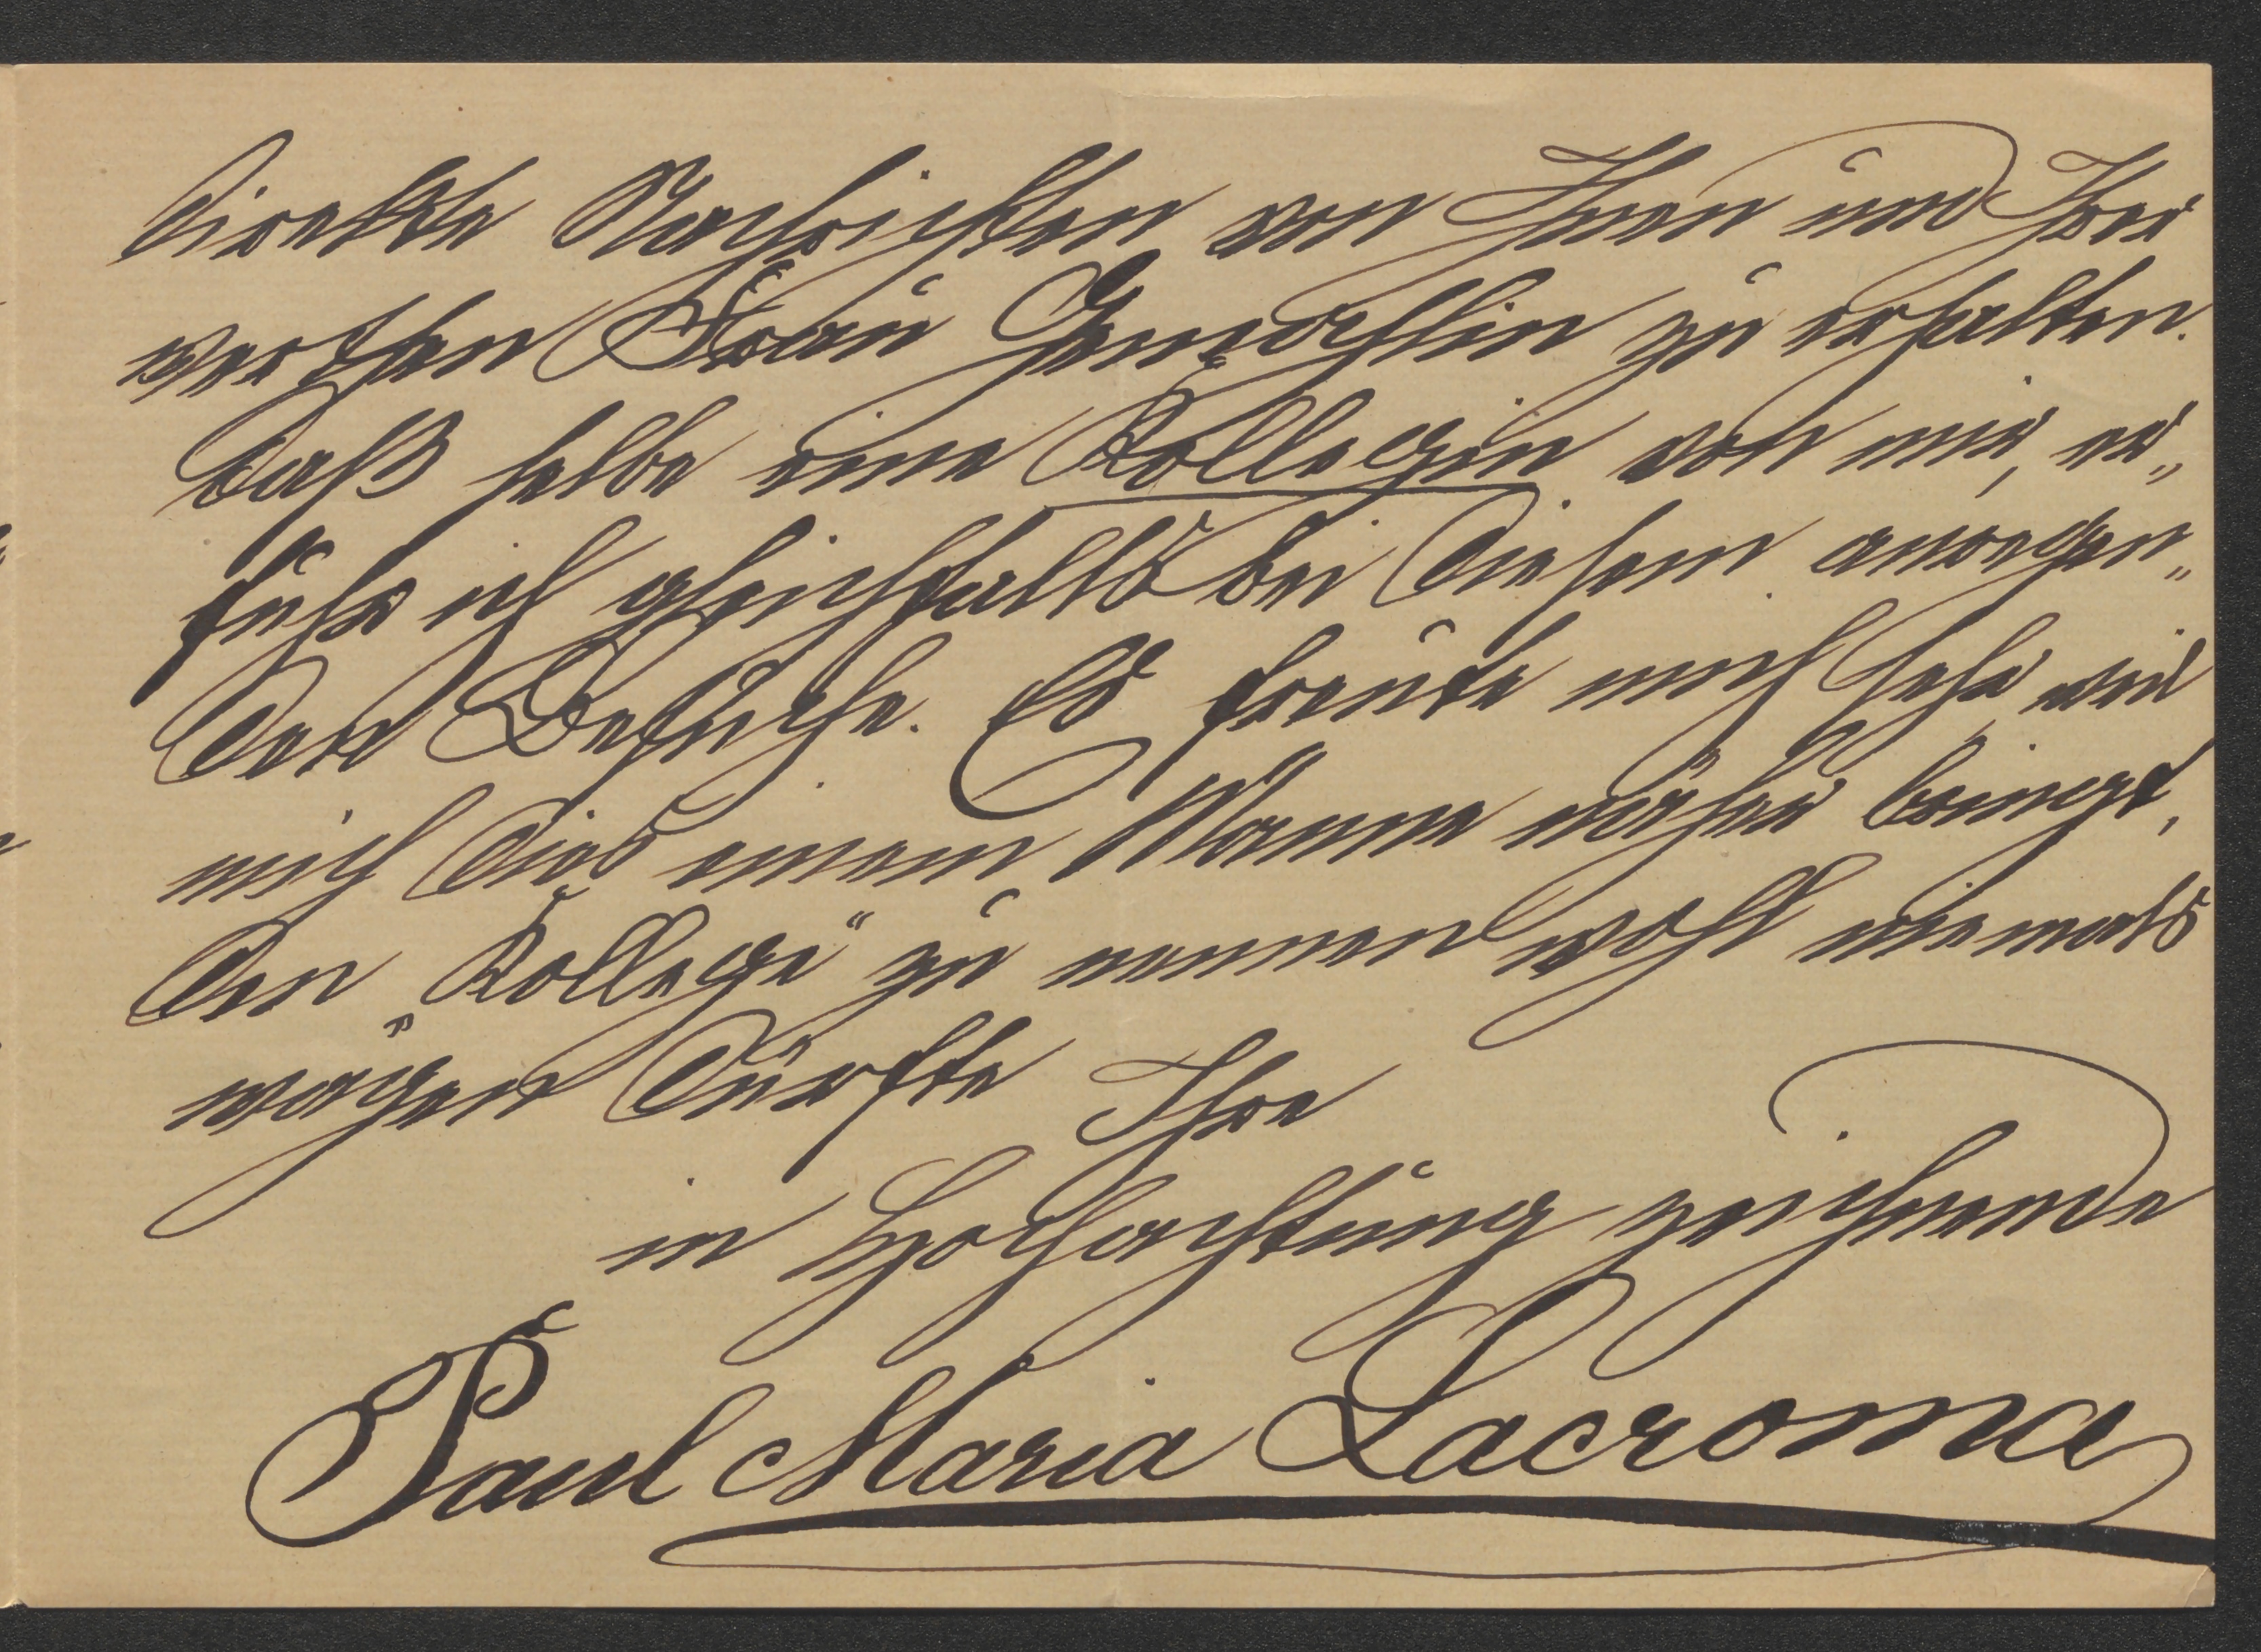 direkte Nachrichten von Ihnen und Ihrer
werthen Frau Gemahlin zu erhalten.
Daß selbe eine Kollegin von mir, er„
fuhr ich gleichfalls bei diesem anregen„
den Besuche. Es freute mich sehr, weil
mich dies einem Manne näher bringt,
den „Kollege“ zu nennen wohl niemals
wagen dürfte Ihre
in Hochachtung zeichnende
Paul Maria Lacroma